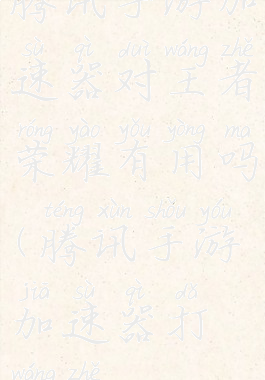 腾讯手游加
sù qì duì wáng zhě
速器对王者
róng yào yǒu yòng ma
荣耀有用吗
téng xùn shǒu yóu
（腾讯手游
jiā sù qì dǎ
加速器打
wáng zhě